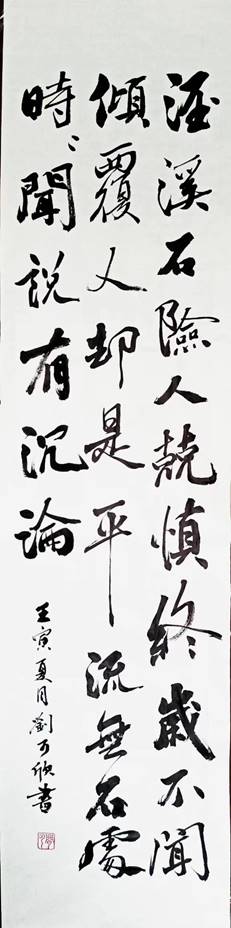 涇溪石險人兢慎終歲不聞
傾覆人却是平流無石處
時〻聞說有沉淪
壬寅夏月劉可欣書